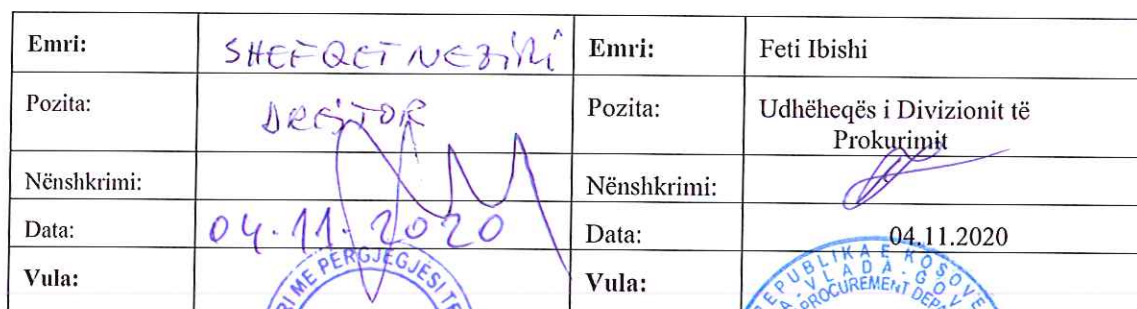 Emri: SHEFQET NEZIRI Emri: Feti Ibishi
Pozita: DREJTOR Pozita: Udhëheqës i Divizionit të
Prokurimit
Nënshkrimi: Nënshkrimi:
Data: 04.11.2020 Data: 04.11.2020
Vula: PËRGJEGJËSI TË Vula: REPUBLIKA E KOSOVË
VLADA
PROCUREMENT